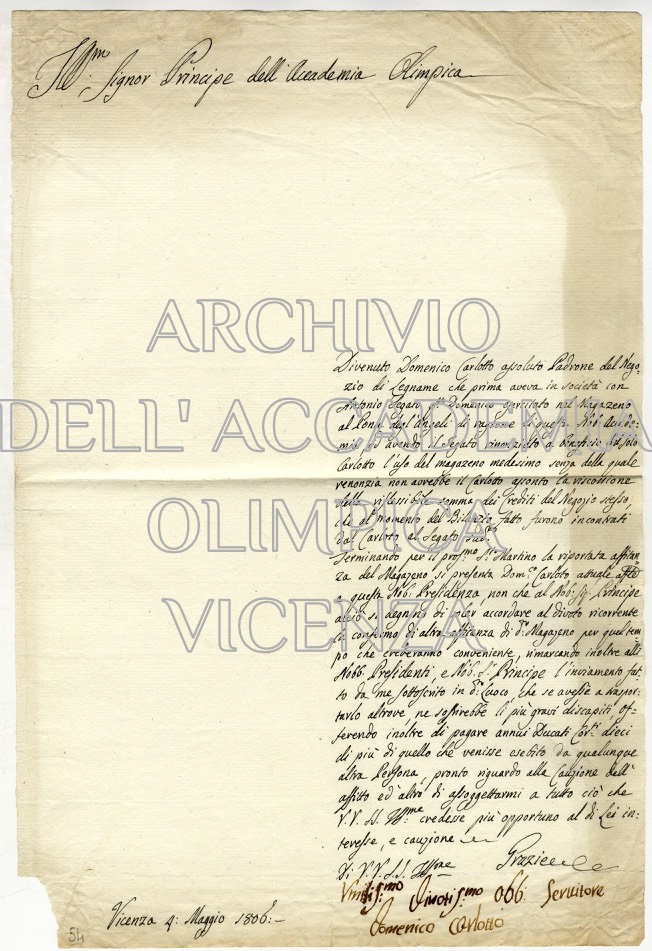 Ill.mo Signor Principe dell'Accademia Olimpica
ARCHIVIO
DELL'ACCADEMIA
OLIMPICA
VICENZA
Divenuto Domenico Carlotto assoluto Padrone del Nego-
zio di Legname che prima aveva in società con
Antonio Segato Domenico esercitato nel Magazeno
al Ponte degl'Angeli di ragione di questa Nob. Accade-
mia, ed avendo il Segato rinonziato a benefizio del solo
Carlotto l'uso del magazeno medesimo senza della quale
renonzia non avrebbe il Carlotto assonto la riscossione
della riflessibile somma dei Crediti del Negozio stesso,
che al momento del Bilanzio fatto furono incontrati
dal Carloto al Segato sud.o
Terminando per il pross.mo S. Martino la riportata affitan-
za del Magazeno si presenta Dom.o Carloto attuale
a questa Nob. Presidenza, non che al Nob. Sig. Principe
acciò si degnino di voler accordare al divoto ricorrente
la conferma di altra affitanza di d.o Magazeno per quel tem-
po che crederanno conveniente, rimarcando inoltre alli
Nobb. Presidenti, e Nob. S.r Principe l'inviamento fat-
to da me sottoscrito in d.o Luoco, che se avesse a traspor-
tarlo altrove, ne soffrirebbe li più gravi discapiti, of-
ferendo inoltre di pagare annui Ducati Cor.ti dieci
di più di quello che venisse esebito da qualunque
altra Persona, pronto riguardo alla Cauzione dell'
affitto ed altro di assoggettarmi a tutto ciò che
V.V. S.S. Ill.me credesse più opportuno al di Lei in-
teresse, e cauzione
Grazie
Di V.V. S.S. Ill.me
Umilis.mo Divotis.mo obb. Servitore
Domenico Carlotto
Vicenza 4: Maggio 1806:-
54